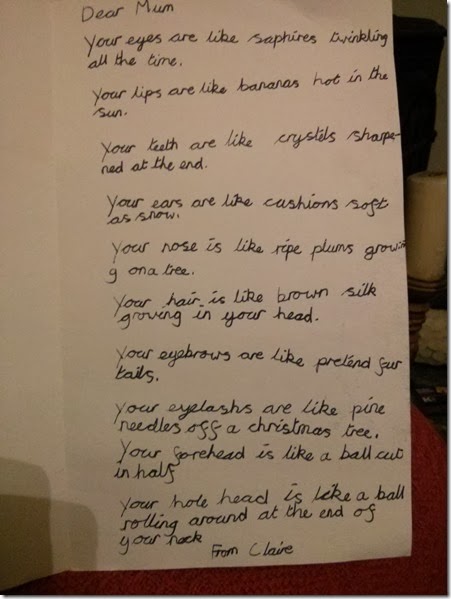 Dear Mum
Your eyes are like saphires twinkling
all the time.
Your lips are like bananas hot in the
sun.
Your teeth are like crystels sharpe-
ned at the end.
Your ears are like cushions soft
as snow.
Your nose is like ripe plums growin
g on a tree.
Your hair is like brown silk
groving in your head.
Your eyebrows are like pretend fur
tails.
Your eyelashs are like pine
needles off a christmas tree.
Your forehead is like a ball cut
in half
Your hole head is like a ball
rolling around at the end of
your neck
From Claire